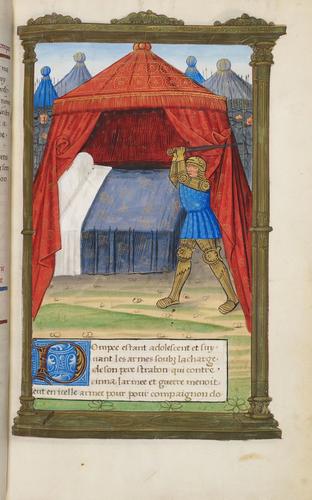 Pompee estant adolescent et suy-
uant les armes soubz la charge
de son pere straton qui contre
cinna larmee et guerre menoit
eut en icelle armee pour pour compaignon de